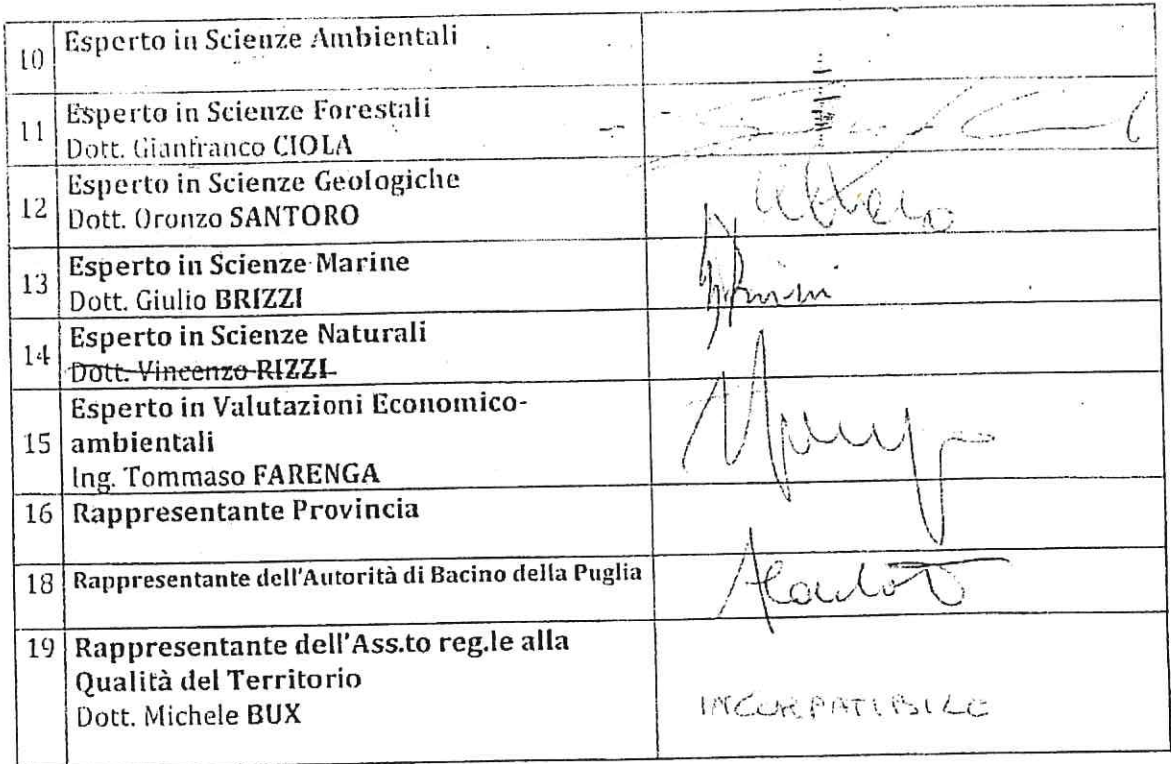 10 Esperto in Scienze Ambientali
11 Esperto in Scienze Forestali
Dott. Gianfranco CIOLA
12 Esperto in Scienze Geologiche
Dott. Oronzo SANTORO
13 Esperto in Scienze Marine
Dott. Giulio BRIZZI
14 Esperto in Scienze Naturali
Dott. Vincenzo RIZZI
15 Esperto in Valutazioni Economico-
ambientali
Ing. Tommaso FARENGA
16 Rappresentante Provincia
18 Rappresentante dell'Autorità di Bacino della Puglia
19 Rappresentante dell'Ass.to reg.le alla
Qualità del Territorio
Dott. Michele BUX
INCOMPATIBILE